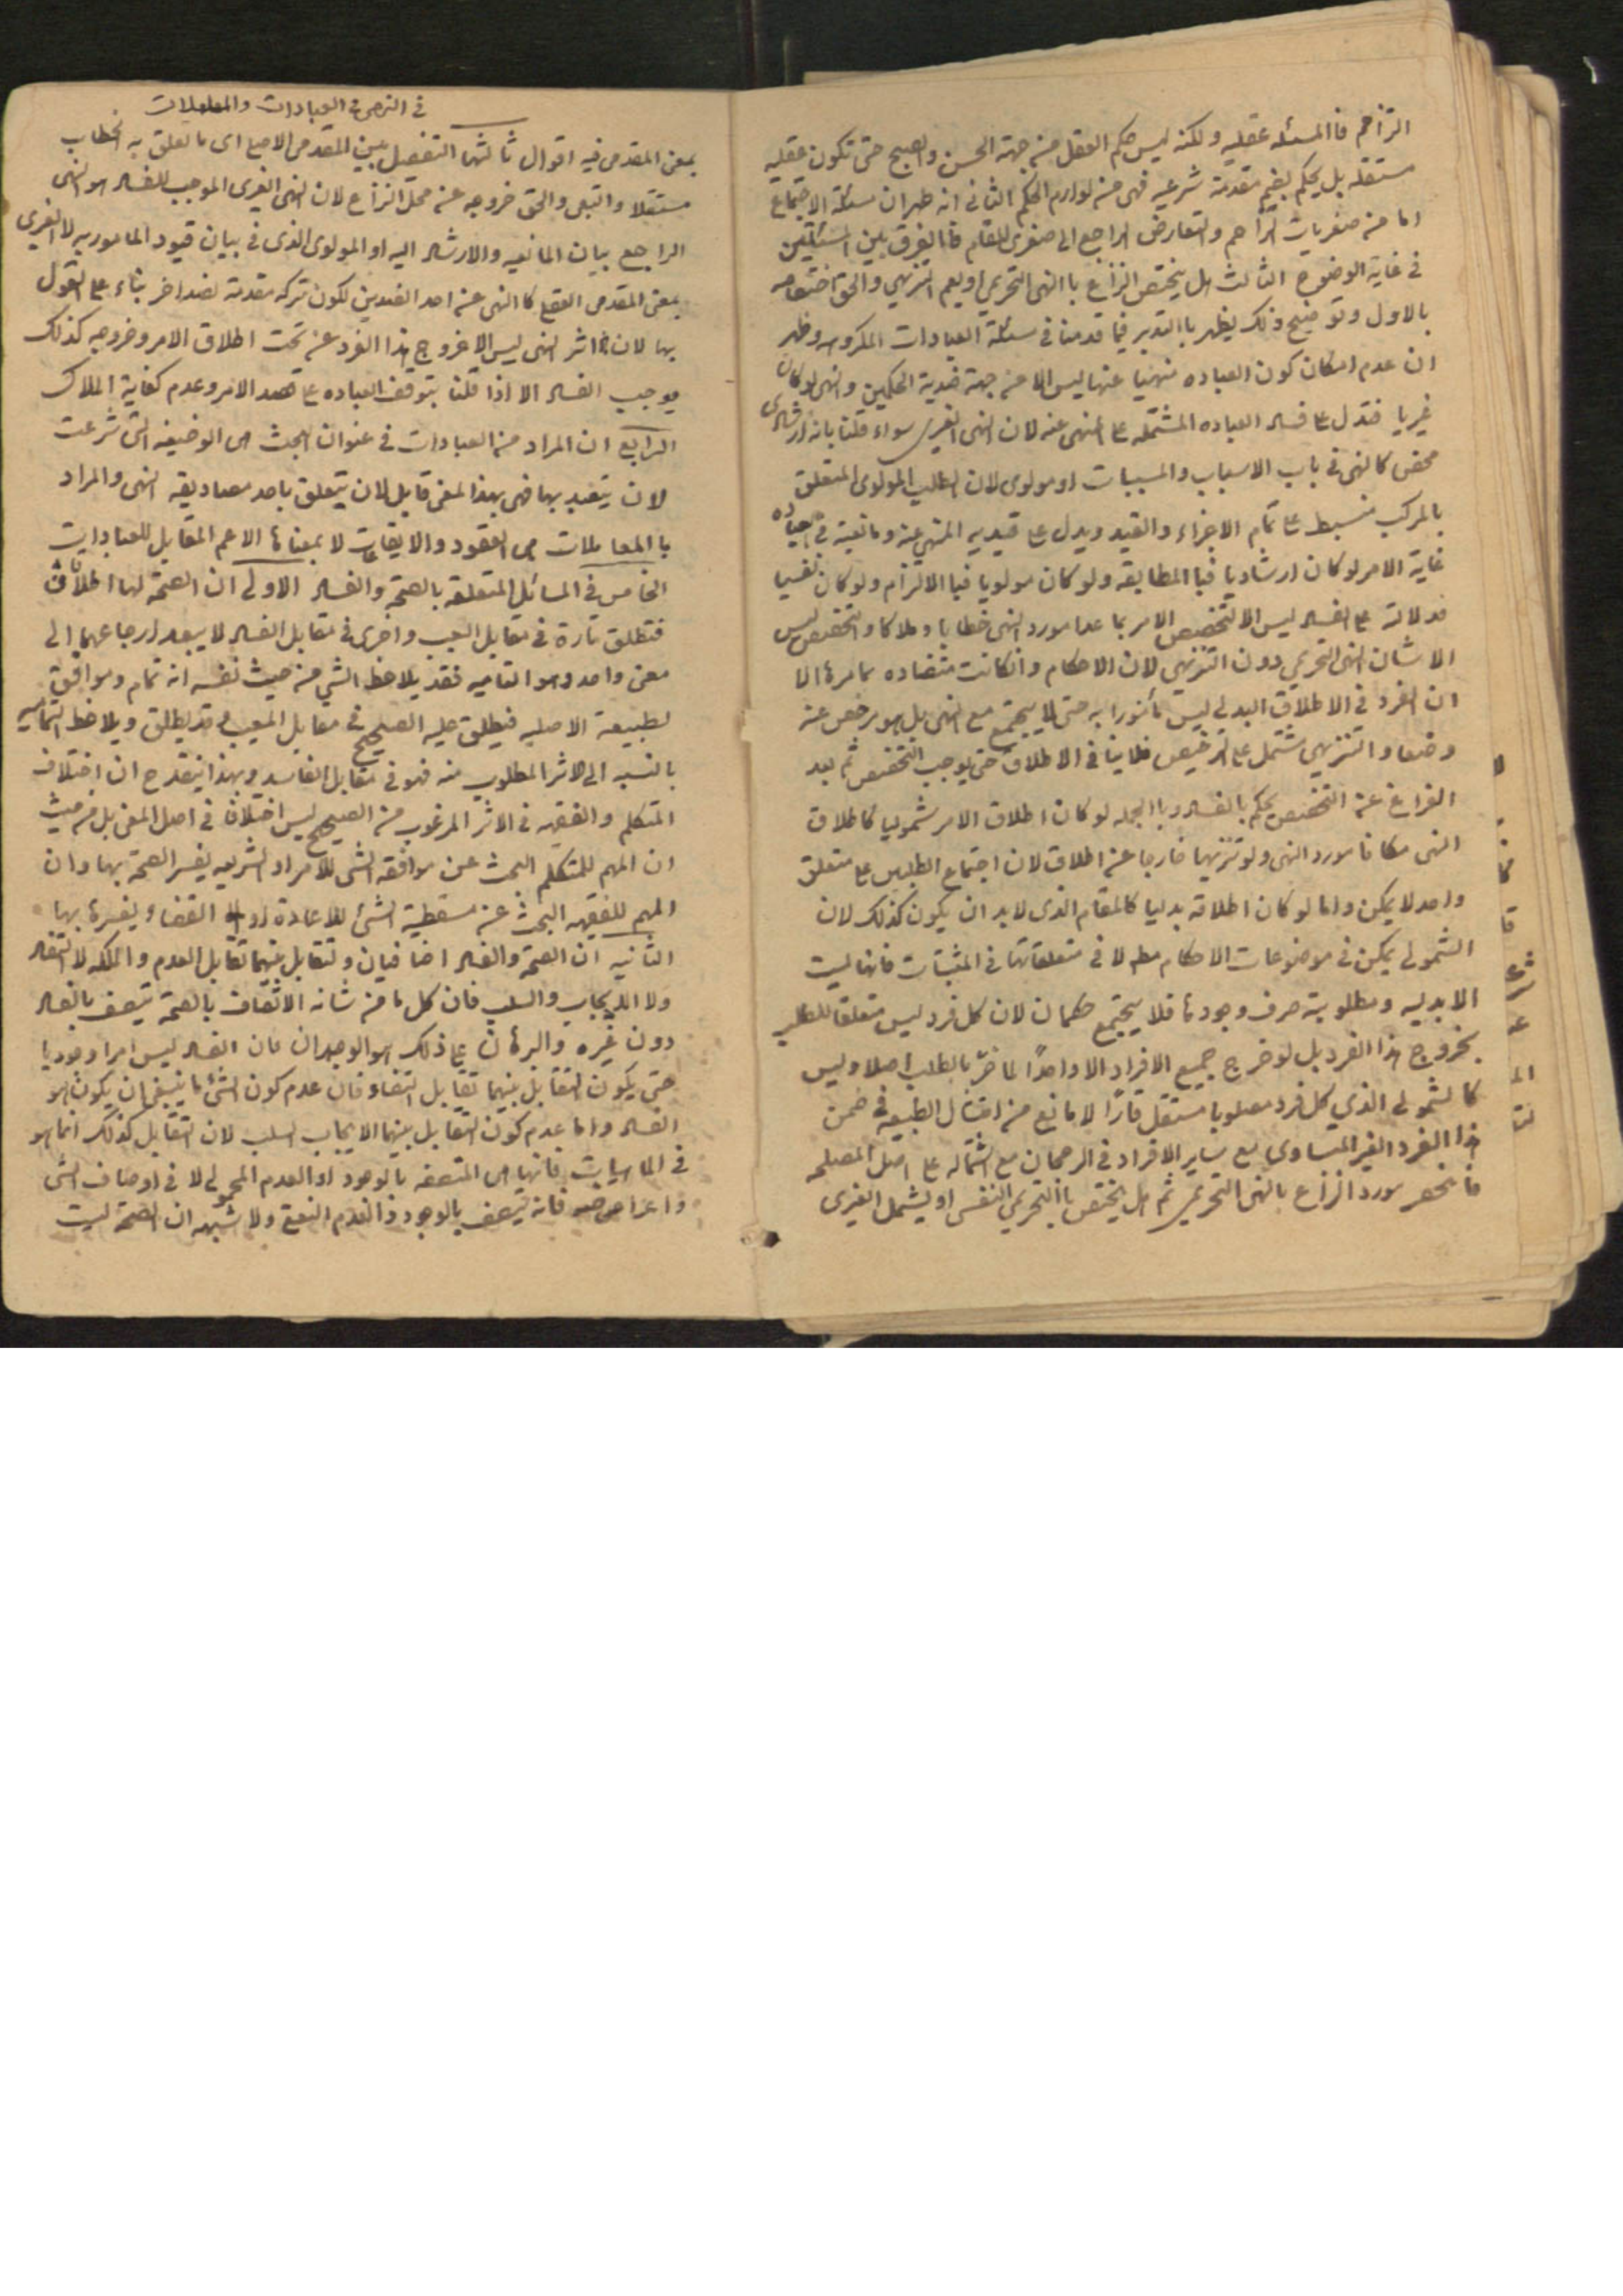 التزاحم فالمسئله عقليه ولكنه ليس حكم العقل من جهة الحسن والقبح حتى تكون عقليه
مستقله بل يحكم بضم مقدمة شرعيه فهى من لوازم الحكم الثانى انه ظهر ان مسئلة الاجتماع
اما من صغريات التزاحم والتعارض الراجع الى صغرى للمقام فالفرق بين المسئلتين
فى غاية الوضوح الثالث هل يختص النزاع باالنهى التحريمى او يعم التنزيهى والحق اختصاصه
بالاول وتوضيح ذلك يظهر باالتدبر فيما قدمنا فى مسئلة العبادات المكروهه وظهر
ان عدم امكان كون العباده منهيا عنها ليس الا من جهة ضدية الحكمين والنهى لو كان
غيريا فتدل على فساد العباده المشتمله على المنهى عنه لان النهى الغيرى سواء قلنا بانه ارشادى
محض كالنهى فى باب الاسباب والمسببات او مولوى لان الطلب المولوى المتعلق
بالمركب منبسط على تمام الاجزاء والقيد ويدل على قيديه المنهى عنه ومانعيته فى العباده
غاية الامر لو كان ارشاديا فبا المطابقه ولو كان مولويا فبا الالتزام ولو كان نفسيا
فدلالته على الفساد ليس الا لتخصيص الامر بما عدا مورد النهى خطابا وملاكا والتخصيص ليس
الا شان النهى التحريمى دون التنزيهى لان الاحكام وانكانت متضاده باسرها الا
ان الفرد فى الاطلاق البدلى ليس مأمورا به حتى لا يجتمع مع النهى بل هو مرخص عنه
وضعا والتنزيهى مشتمل على الترخيص فلا ينافى الاطلاق حتى يوجب التخصيص ثم بعد
الفراغ عن التخصيص يحكم بالفساد وباالجمله لو كان اطلاق الامر شموليا كاطلاق
النهى مكانا مورد النهى ولو تنزيهيا خارجا عن اطلاق لان اجتماع الطلبين على متعلق
واحد لا يمكن واما لو كان اطلاقه بدليا كالمقام الذى لابد ان يكون كذلك لان
الشمولى يمكن فى موضوعات الاحكام مط لا فى متعلقاتها فى المثبتات فانها ليست
الا بدليه ومطلوبية صرف وجودها فلا يجتمع حكمان لان كل فرد ليس متعلقا للطلب
بخروج هذا الفرد بل لو خرج جميع الافراد الا واحدًا لما ضرّ بالطلب اصلا وليس
كالشمولى الذى كل فرد مطلوبا مستقل قارًا لا مانع من امتثال الطبيعه فى ضمن
هذا الفرد الغير المتساوى مع ساير الافراد فى الرجحان مع اشتماله على اصل المصلحه
فانحصر مورد النزاع بالنهى التحريمى ثم هل يختص باالتحريمى النفسى او يشمل الغيرى
فى النهى فى العبادات والمعاملات
بمعنى المقدمى فيه اقوال ثالثها التفصيل بين المقدمى الاصلى اى ما تعلق به الخطاب
مستقلا والتبعى والحق خروجه عن محل النزاع لان النهى الغيرى الموجب للفساد هو النهى
الراجع بيان المانعيه والارشاد اليه او المولوى الذى فى بيان قيود المامور به لا الغيرى
بمعنى المقدمى العقلى كاالنهى عن احد الضدين لكون تركه مقدمة لضد اخر بناء على القول
بها لان اثر النهى ليس الا خروج هذا الفرد عن تحت اطلاق الامر وخروجه كذلك
يوجب الفساد الا اذا قلنا بتوقف العباده على قصد الامر وعدم كفاية الملاك
الرابع ان المراد من العبادات فى عنوان البحث هى الوضيفه التى شرعت
لان يتعبد بها فهى بهذا لمعنى قابل لان يتعلق باحد مصاديقه النهى والمراد
باالمعاملات هى العقود والايقاعات لا بمعناها الاعم المقابل للعبادات
الخامس فى المسائل المتعلقه بالصحة والفساد الاولى ان الصحة لها اطلاقان
فتطلق تارة فى مقابل العيب واخرى فى مقابل الفساد لا يبعد ارجاعهما الى
معنى واحد وهو التماميه فقد يلاحظ الشئ من حيث نفسه انه تمام وموافق
لطبيعة الاصليه فيطلق عليه الصحيح فى مقابل المعيب وقد يطلق ويلاحظ التماميه
بالنسبه الى الاثر المطلوب منه فهو فى مقابل الفاسد وبهذا ينقدح ان اختلاف
المتكلم والفقيه فى الاثر المرغوب من الصحيح ليس اختلافا فى اصل المعنى بل من حيث
ان المهم للمتكلم البحث عن موافقة الشئ للامر او الشريعه يفسر الصحة بها وان
المهم للفقيه البحث عن مسقطية الشئ للاعادة او القضاء ويفسرها بها
الثانيه ان الصحة والفساد اضافيان والتقابل بينهما تقابل العدم والملكه لا التضاد
ولا الايجاب والسلب فان كل ما من شانه الاتصاف بالصحة يتصف بالفساد
دون غيره والبرهان على ذلك هو الوجدان فان الفساد ليس امرا وجوديا
حتى يكون التقابل بينهما تقابل التضاد فان عدم كون الشئ ما ينبغى ان يكون هو
الفساد واما عدم كون التقابل بينهما الايجاب السلب لان التقابل كذلك انما هو
فى الماهيات فانها هى المتصفه بالوجود او العدم المحمولى لا فى اوصاف الشئ
واعراضه فانه يتصف بالوجود والعدم النعتى ولا شبهه ان الصحة ليست